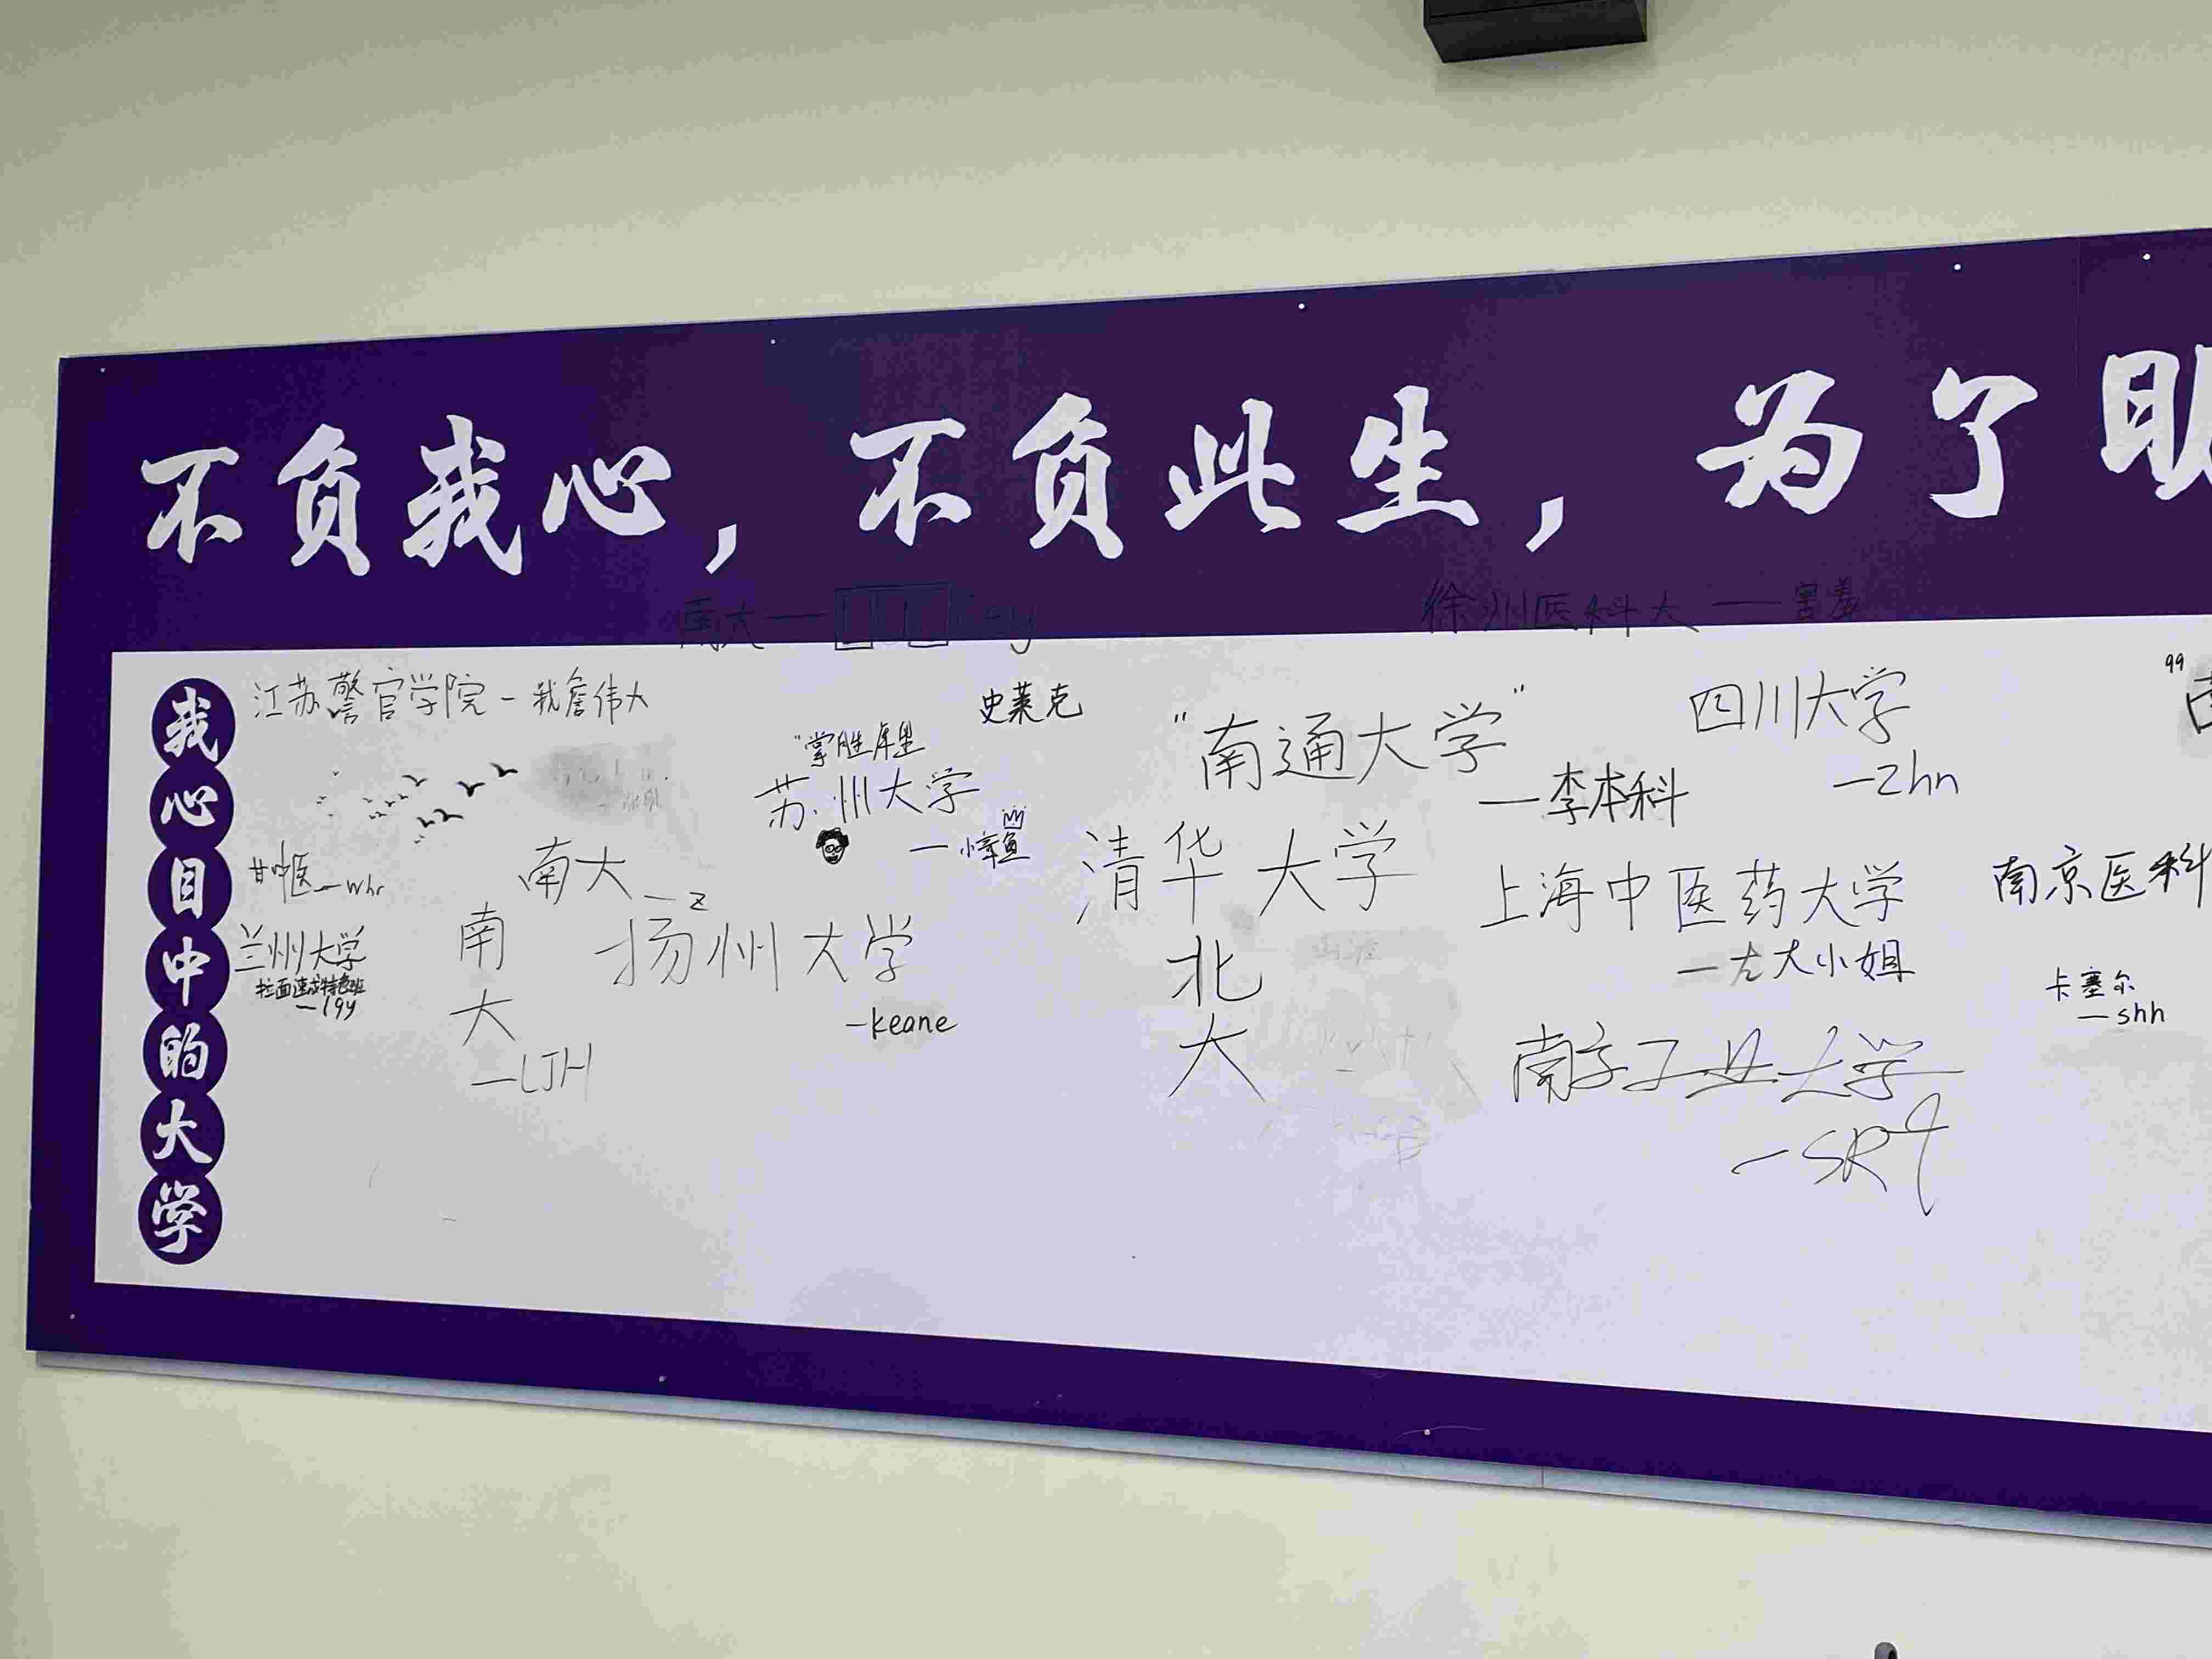 不负我心，不负此生，为了
南大——
徐州医科大——害羞
我心目中的大学
江苏警官学院－我詹伟大
史莱克
苏州大学
"南通大学"
—李本科
四川大学
—zhn
甘中医—whr
南大—z
兰州大学
拉面速成特色班
—lgy
南大
—LJH
扬州大学
—keane
清华大学
北大
上海中医药大学
—左大小姐
南京工业大学
—SRq
南京医科
卡塞尔
—shh